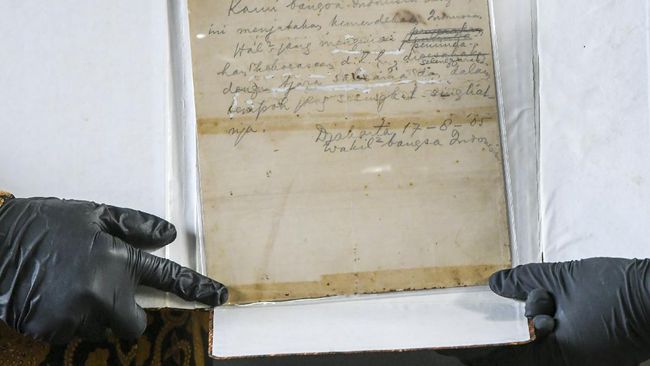 Kami bangsa Indonesia dengan
ini menjatakan kemerdekaan Indonesia.
Hal2 jang mengenai
pemindahan kekoeasaan d.l.l., diselenggarakan
dengan tjara saksama dan dalam
tempoh jang sesingkat-singkat
nja.
Djakarta, 17-8-'05
Wakil2 bangsa Indonesia